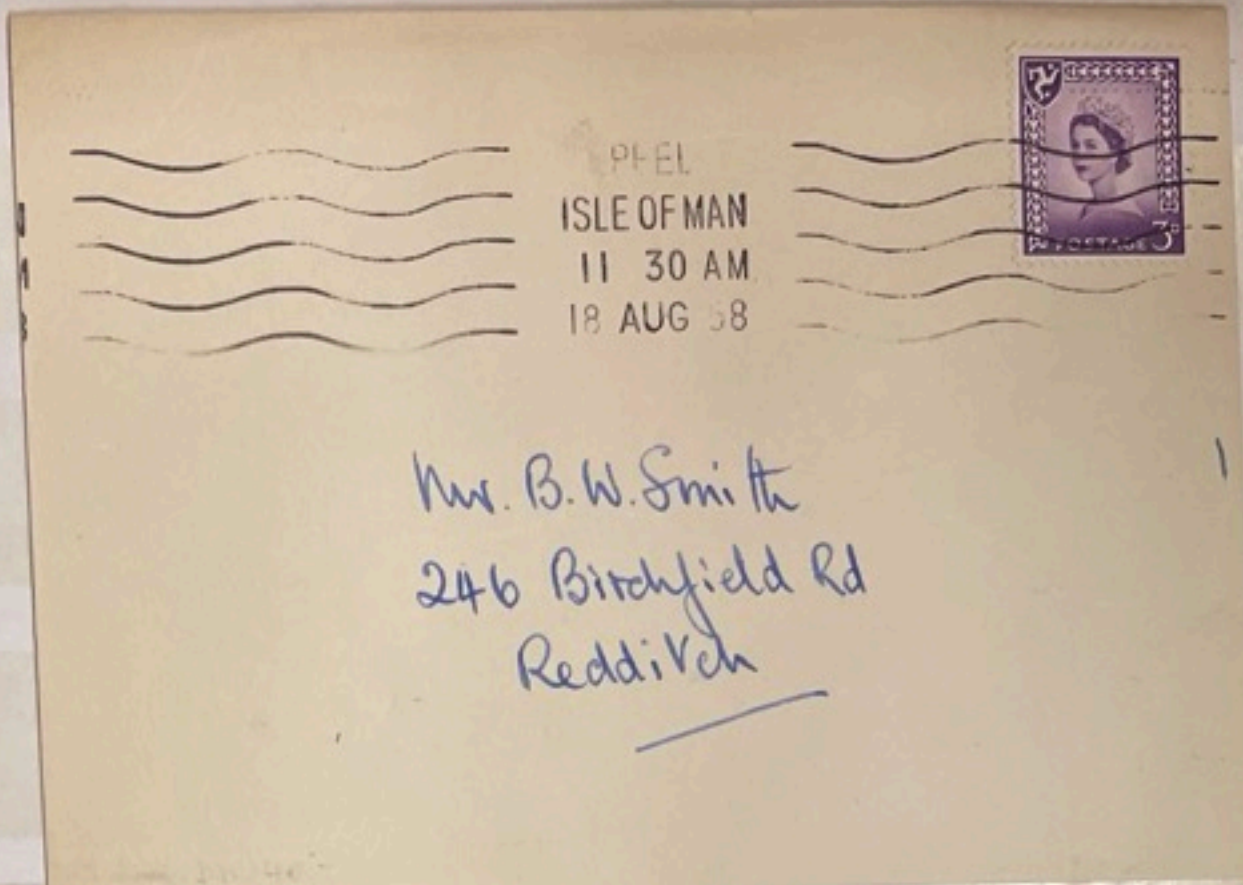 PEEL
ISLE OF MAN
11 30 AM
18 AUG 58
POSTAGE 3D
Mr. B. W. Smith
246 Birchfield Rd
Redditch